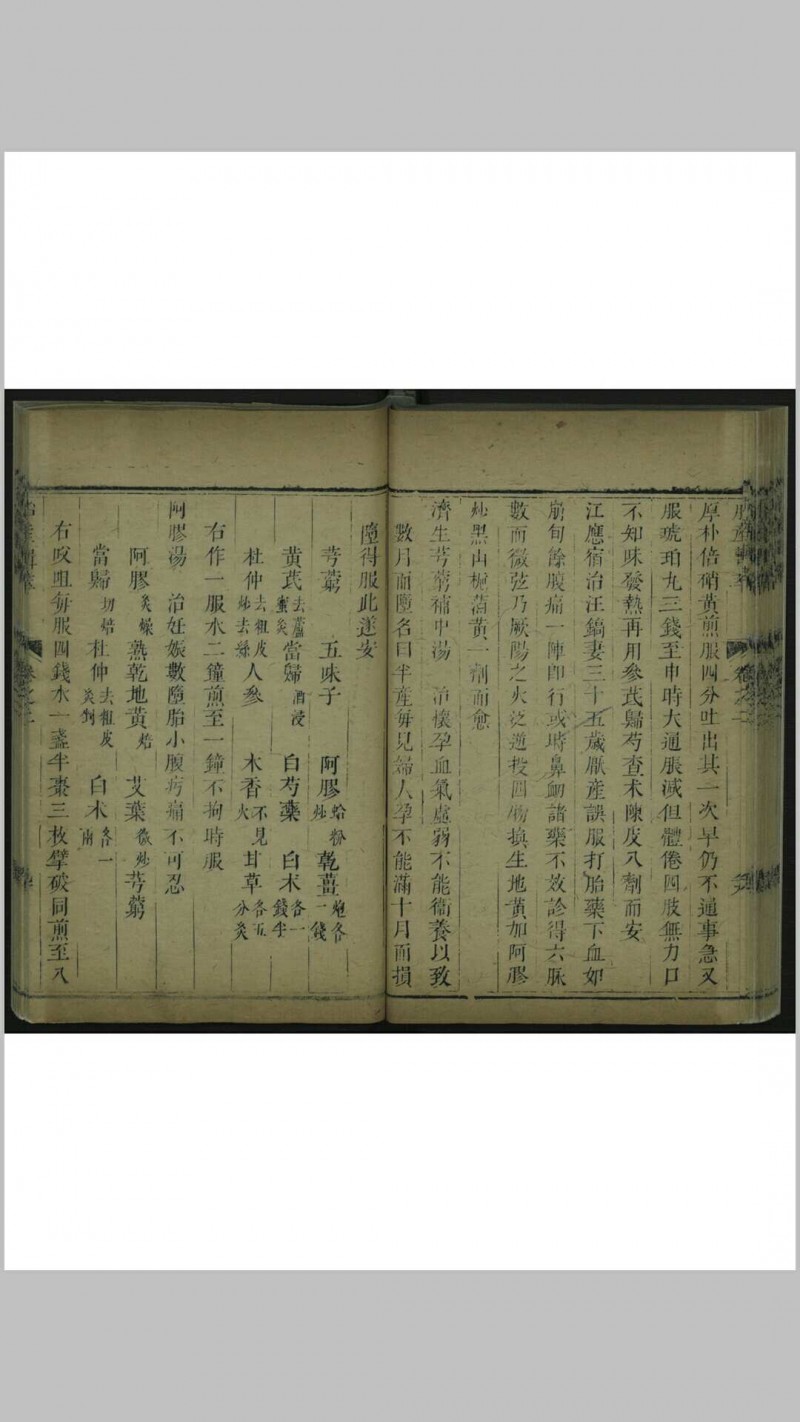 厚朴倍硝黃煎服四分吐出其一次早仍不通事急又
服琥珀丸三錢至申時大通脹減但體倦四肢無力口
不知味發熱再用參芪歸芍查术陳皮八劑而安
江應宿治汪鎬妻三十五歲厭産誤服打胎藥下血如
崩旬餘腹痛一陣即行或時鼻衂諸藥不效診得六脉
數而微弦乃厥陽之火泛逆投四物換生地黃加阿膠
炒黑山梔蒲黃一劑而愈
濟生芎藭補中湯 治懷孕血氣虛弱不能衞養以致
數月而墮名曰半產每見婦人孕不能滿十月而損
墮得服此遂安
芎藭 五味子 阿膠蛤粉炒 乾薑炮各一錢
黃芪去蘆蜜炙 當歸酒浸 白芍藥 白术各一錢半
杜仲去粗皮炒去絲 人參 木香不見火 甘草各五分炙
右作一服水二鐘煎至一鐘不拘時服
阿膠湯 治妊娠數墮胎小腹㽲痛不可忍
阿膠炙燥 熟乾地黃焙 艾葉微炒 芎藭
當歸切焙 杜仲去粗皮炙剉 白术各一兩
右㕮咀每服四錢水一盞半棗三枚擘破同煎至八
卷之二